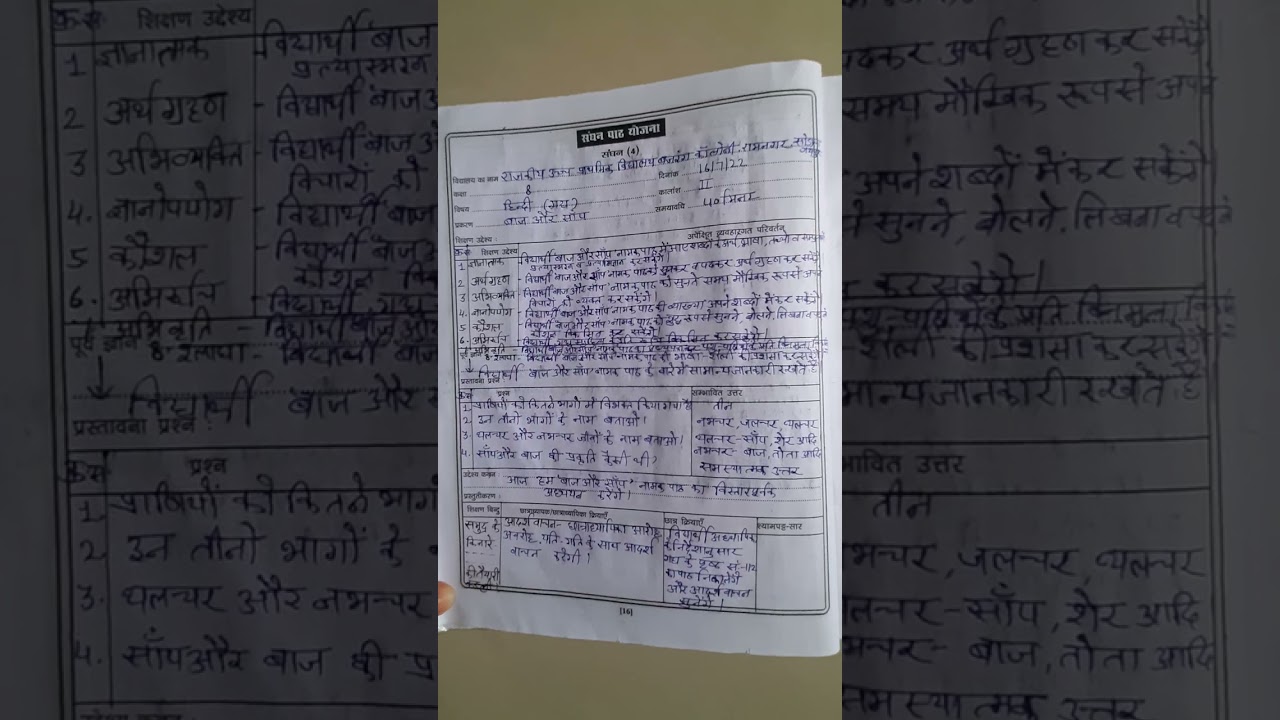 सघन पाठ योजना
सघन (4)
विद्यालय का नाम राजकीय उच्च प्राथमिक विद्यालय बजरंग कॉलोनी रामनगर
कक्षा 8 दिनांक 16/7/22
विषय हिन्दी (गद्य) कालांश II
प्रकरण बाज और साँप समयावधि 40 मिनट
शिक्षण उद्देश्य :
क्र.सं. शिक्षण उद्देश्य अपेक्षित व्यवहारगत परिवर्तन
1 ज्ञानात्मक - विद्यार्थी बाज और साँप नामक पाठ में आए शब्दों के अर्थ, भावों,
प्रत्यास्मरण व प्रत्यभिज्ञान कर सकेंगे।
2 अर्थग्रहण - विद्यार्थी बाज और साँप नामक पाठ को सुनकर व पढकर अर्थ ग्रहण कर सकेंगे
3 अभिव्यक्ति - विद्यार्थी बाज और साँप नामक पाठ को सुनते समय मौखिक रूप से अपने
विचारों को व्यक्त कर सकेंगे।
4. ज्ञानोपयोग - विद्यार्थी बाज और साँप नामक पाठ की व्याख्या अपने शब्दों में कर सकेंगे
5 कौशल - विद्यार्थी बाज और साँप नामक पाठ को शुद्ध रूप से सुनने, बोलने, लिखना व पढने
कौशल विकसित कर सकेंगे।
6. अभिरुचि - विद्यार्थी गद्य
अभिवृति - विद्यार्थी
8 श्लाघा - विद्यार्थी बाज और साँप नामक पाठ की भाषा-शैली की प्रशंसा कर सकेंगे
पूर्व ज्ञान
विद्यार्थी बाज और साँप नामक पाठ के बारे में सामान्य जानकारी रखते है
प्रस्तावना प्रश्न :
क्र.सं. प्रश्न सम्भावित उत्तर
1 प्राणियों को कितने भागो में विभक्त किया गया है तीन
2 उन तीनो भागों के नाम बताओ। नभचर, जलचर, थलचर
3. थलचर और नभचर जीवों के नाम बताओ। थलचर - साँप, शेर आदि
नभचर - बाज, तोता आदि
4. साँप और बाज की प्रकृति कैसी थी? समस्यात्मक उत्तर
उद्देश्य कथन : आज हम "बाज और साँप" नामक पाठ का विस्तारपूर्वक
अध्ययन करेंगे।
प्रस्तुतीकरण :
शिक्षण बिन्दु छात्राध्यापक/छात्राध्यापिका क्रियाएँ छात्र क्रियाएँ श्यामपट्ट-सार
समुद्र के किनारे
आदर्श वाचन - छात्राध्यापिका आरोह, अवरोह, यति-गति के साथ आदर्श वाचन करेगी।
विद्यार्थी अध्यापिका के निर्देशानुसार गद्य के पृष्ठ सं.-112 का पाठ निकालेंगे और आदर्श वाचन सुनेंगे।
[16]